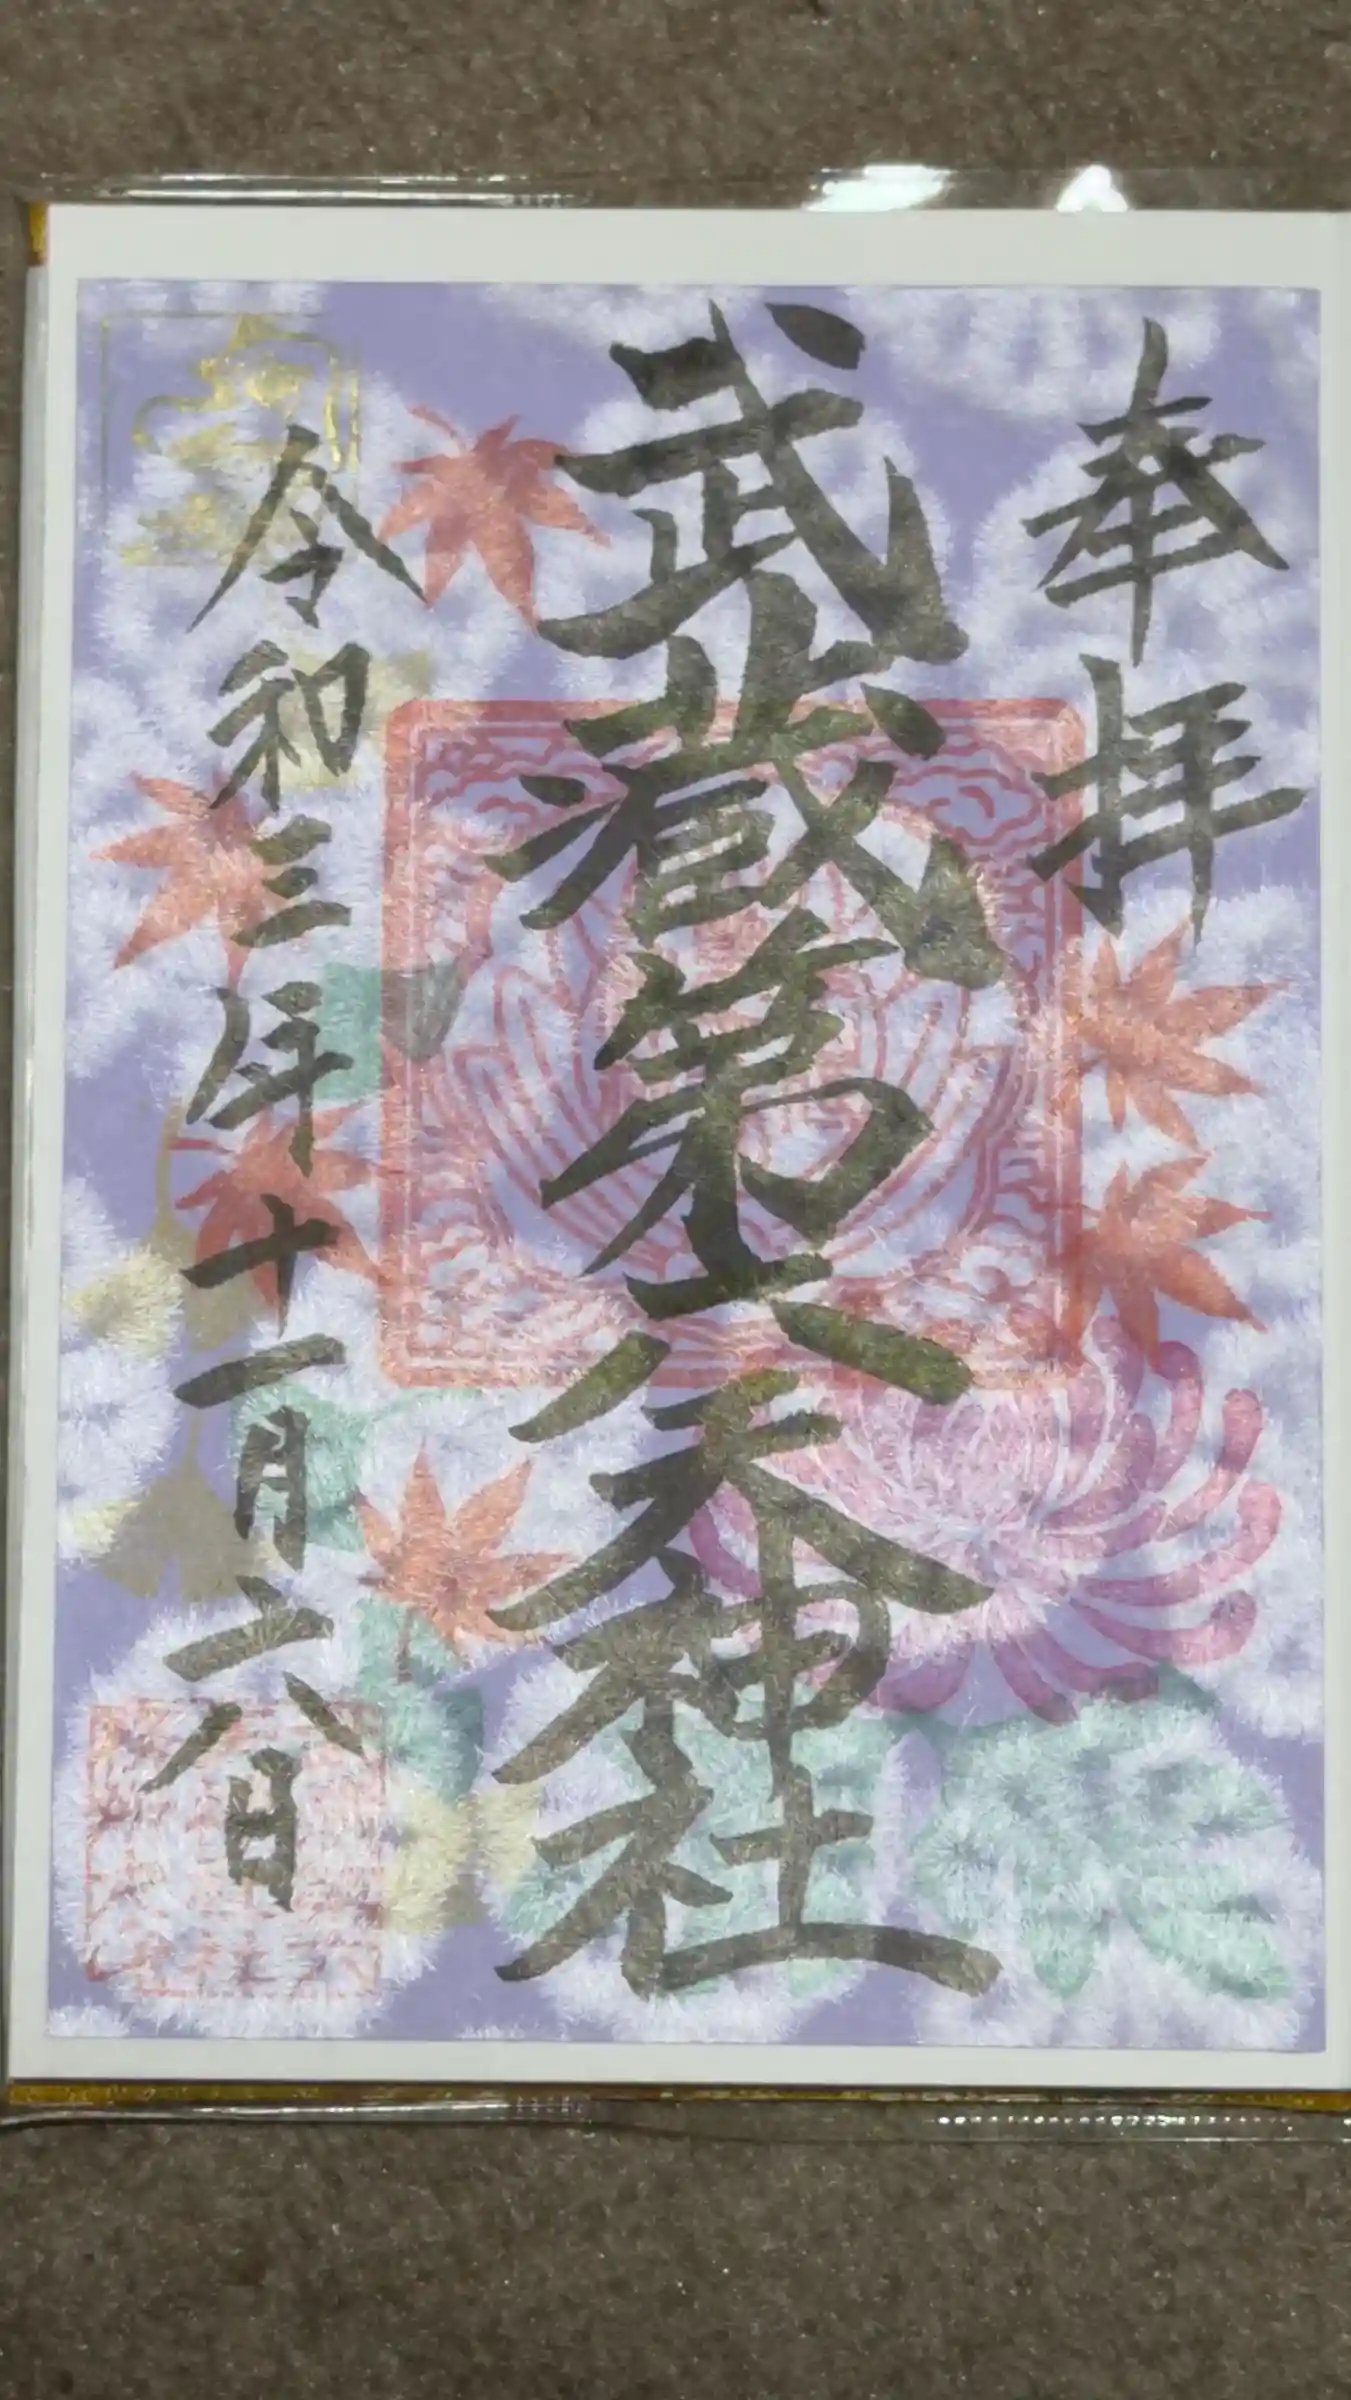 奉拝
武蔵第六天神社
令和三年十一月六日